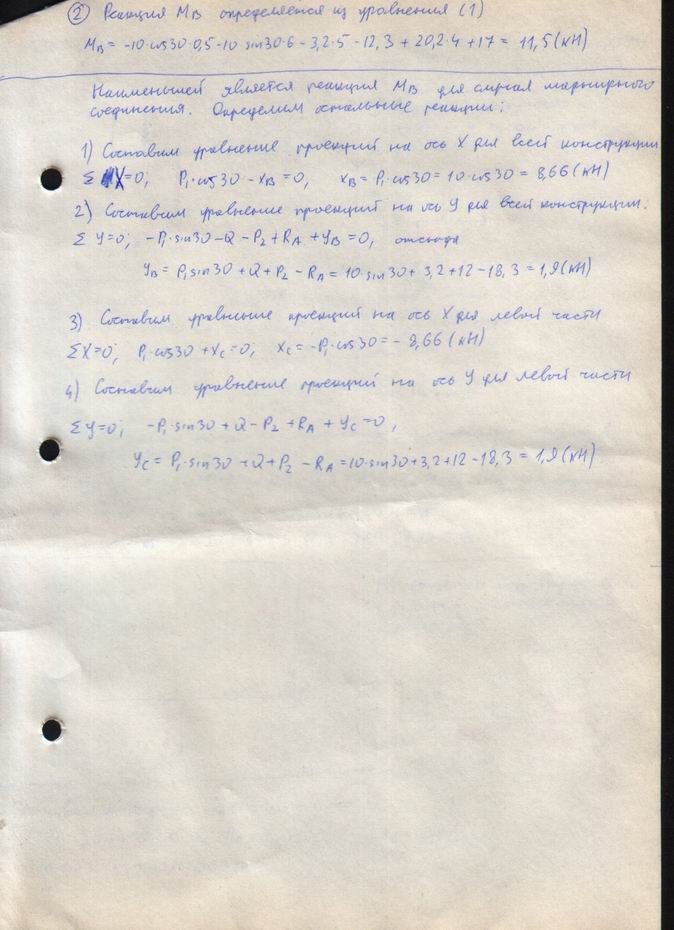 ② Реакция MB определяется из уравнения (1)
MB = -10·cos30·0,5-10·sin30·6-3,2·5-12·3+20,2·4+17=11,5(кН)
Наименьшей является реакция MB для случая шарнирного
соединения. Определим остальные реакции:
1) Составим уравнение проекций на ось X для всей конструкции
ΣX=0; P1·cos30-XB=0, XB=P1·cos30=10·cos30=8,66(кН)
2) Составим уравнение проекций на ось Y для всей конструкции:
ΣY=0; -P1·sin30-Q-P2+RA+YB=0, отсюда
YB=P1sin30+Q+P2-RA=10·sin30+3,2+12-18,3=1,9(кН)
3) Составим уравнение проекций на ось X для левой части
ΣX=0; P1·cos30+XC=0; XC=-P1·cos30=-8,66(кН)
4) Составим уравнение проекций на ось Y для левой части
ΣY=0; -P1·sin30+Q-P2+RA+YC=0,
YC=P1·sin30+Q+P2-RA=10·sin30+3,2+12-18,3=1,9(кН)